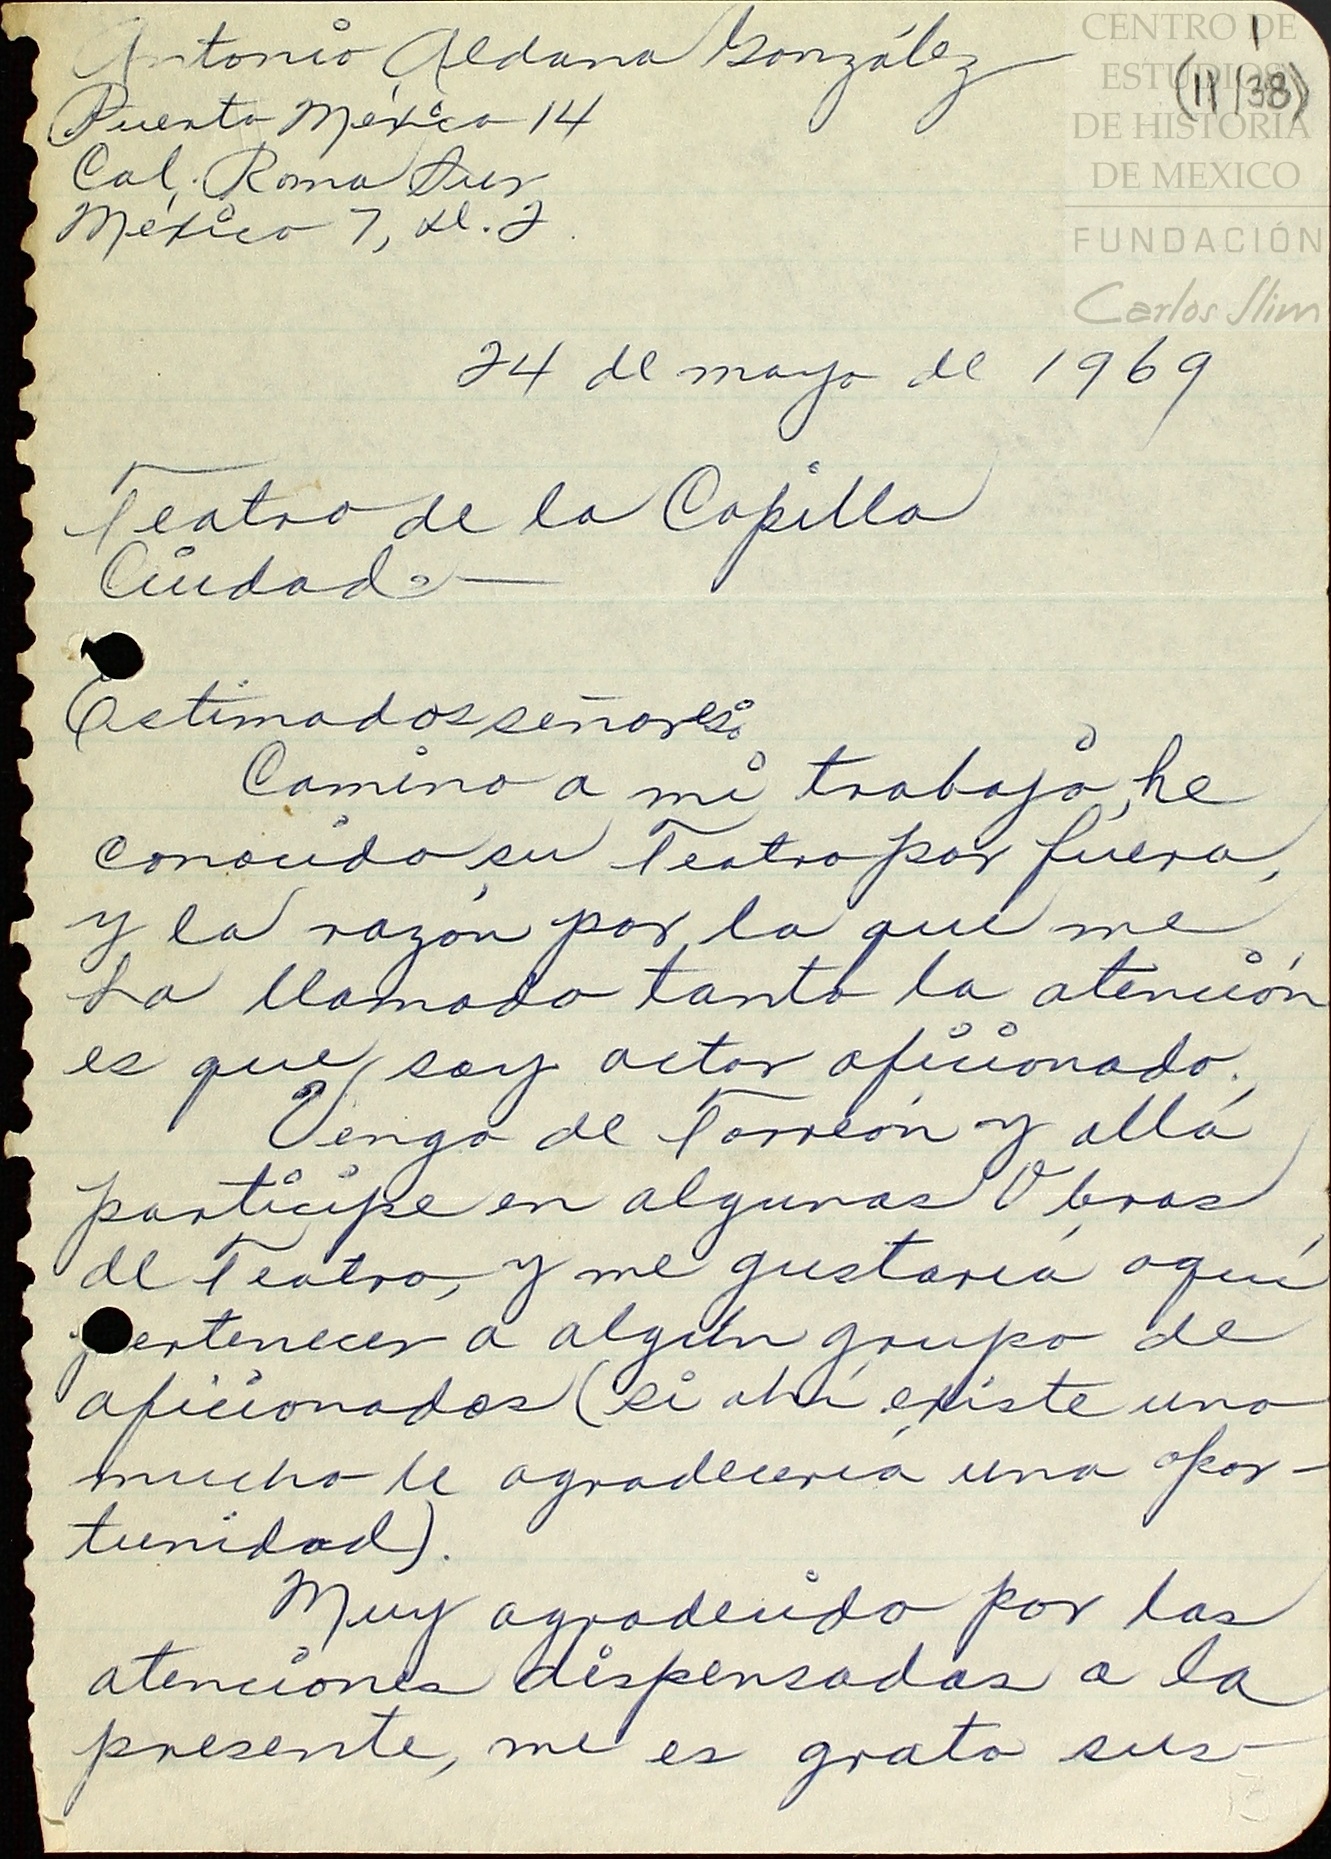 Antonio Aldana González
Puerto México 14
Col. Roma Sur
México 7, d.f.
CENTRO DE
ESTUDIOS
DE HISTORIA
DE MEXICO
FUNDACIÓN
Carlos Slim
(11/38)
24 de mayo de 1969
Teatro de la Capilla
Ciudad.—
Estimados señores:
Camino a mi trabajo, he
conocido su Teatro por fuera,
y la razón por la que me
ha llamado tanto la atención
es que soy actor aficionado.
Vengo de Torreón y allá
participe en algunas Obras
de Teatro, y me gustaría aquí
pertenecer a algún grupo de
aficionados (si ahí existe uno
mucho le agradecería una opor-
tunidad).
Muy agradecido por las
atenciones dispensadas a la
presente, me es grato sus-